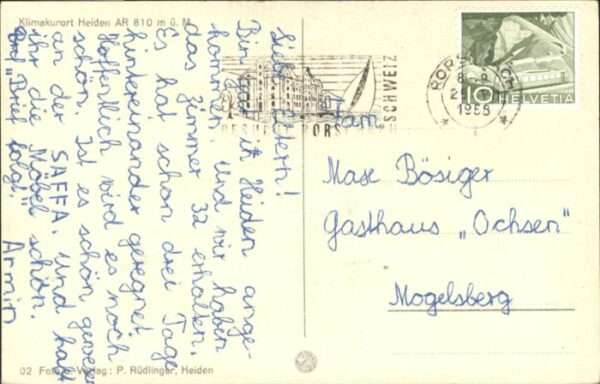 Klimakurort Heiden AR 810 m ü. M.
Liebe Eltern!
Bin gut in Heiden ange-
kommen und wir haben
das Zimmer 32 erhalten.
Es hat schon drei Tage
hintereinander geregnet.
Hoffentlich wird es noch
schön. Ist es schön gewesen
an der SAFFA, und habt
ihr die Möbel schön.
"Brief folgt!"
Armin
SCHWEIZ
HELVETIA
10
1958
Fam.
Max Bösiger
Gasthaus „Ochsen"
Mogelsberg
02 Foto u. Verlag: P. Rüdlinger, Heiden